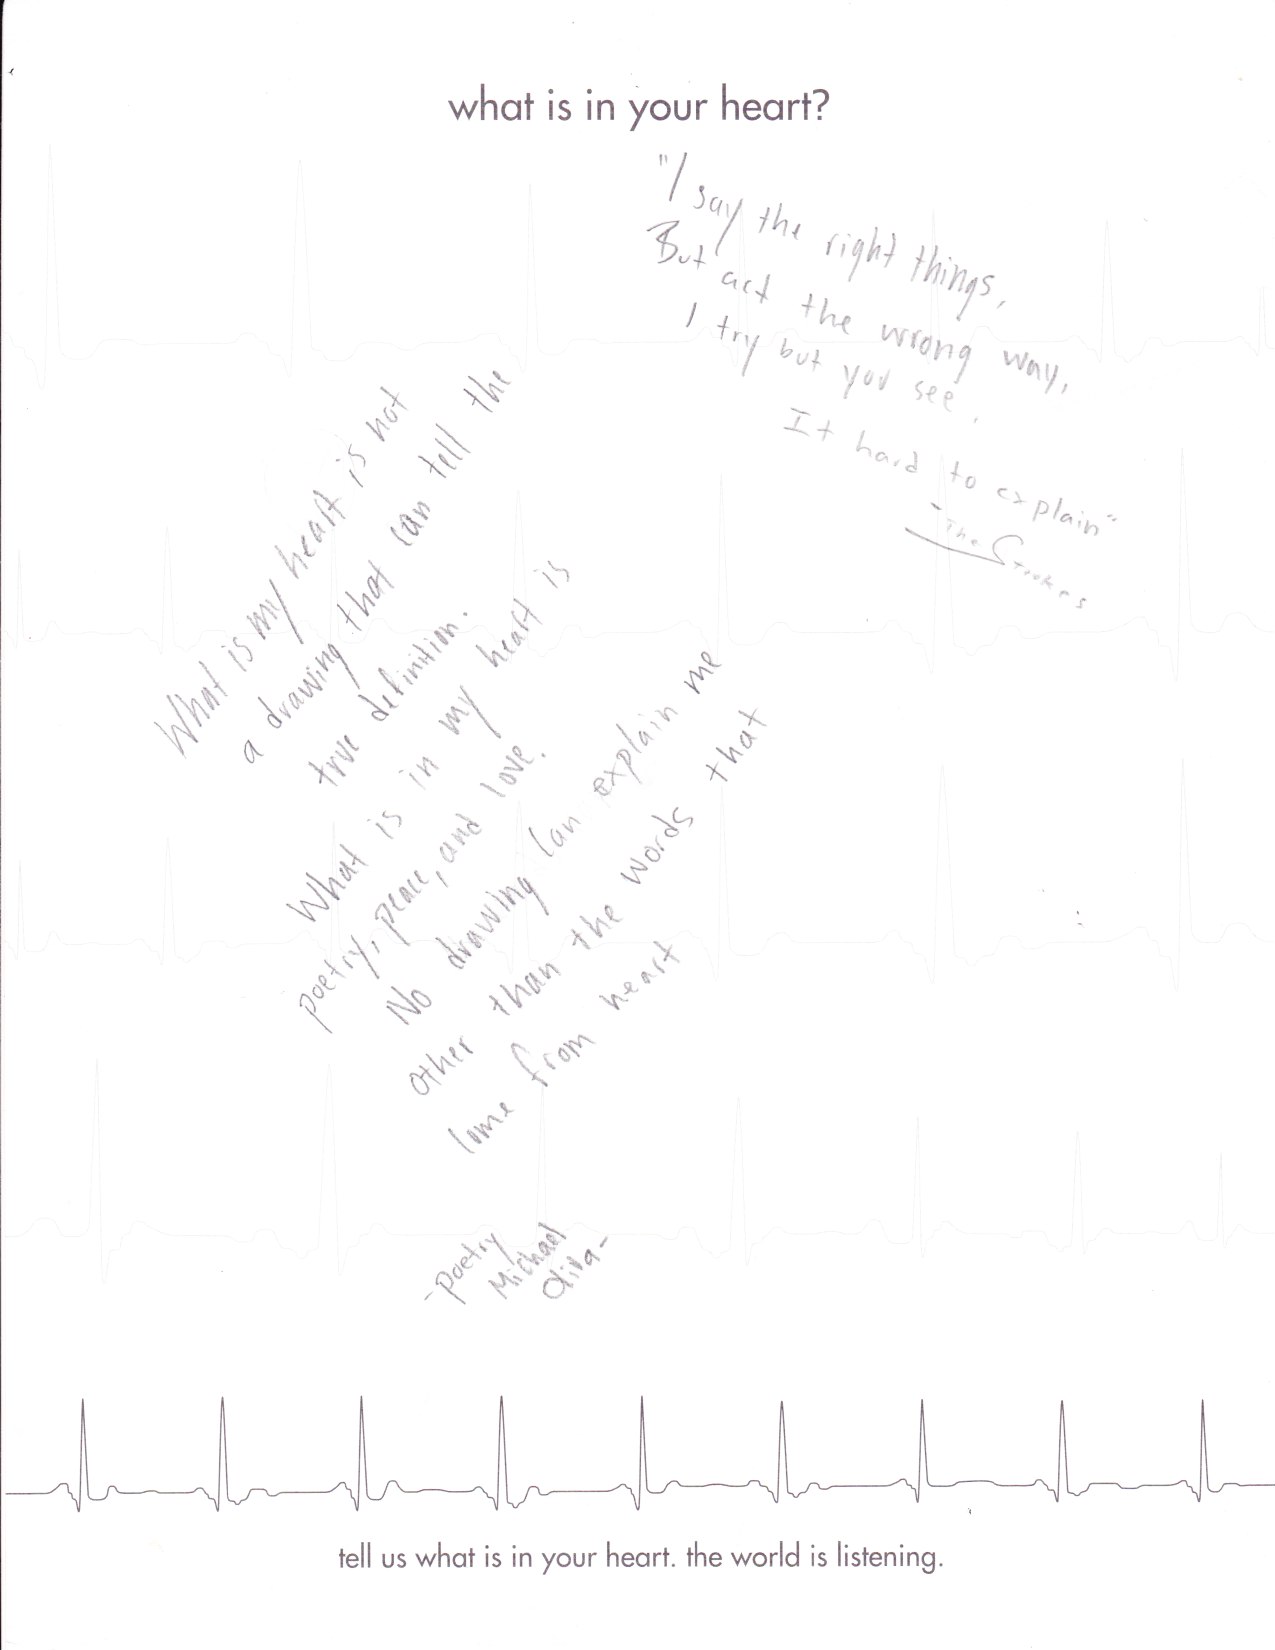 what is in your heart?
"I say the right things,
But act the wrong way,
I try but you see,
It hard to explain"
-The Strokes
What is my heart is not
a drawing that can tell the
true definition.
What is in my heart is
poetry, peace, and love.
No drawing can explain me
other than the words that
come from heart
-poetry
Michael
Oliva-
tell us what is in your heart. the world is listening.